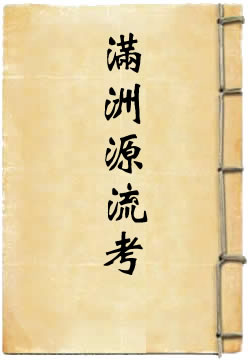 滿洲源流考